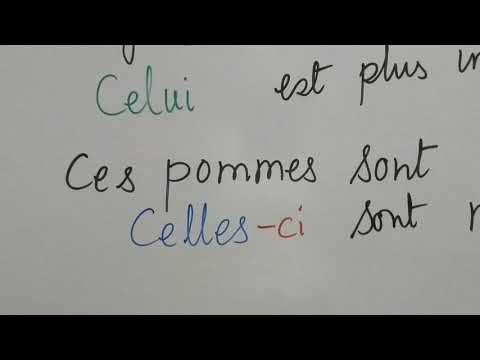 Celui est plus
Ces pommes sont
Celles-ci sont